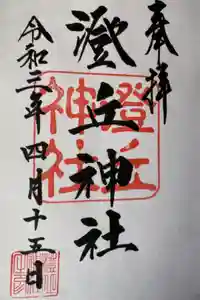 奉拝
澄丘神社
澄丘
神社
令和三年四月十五日